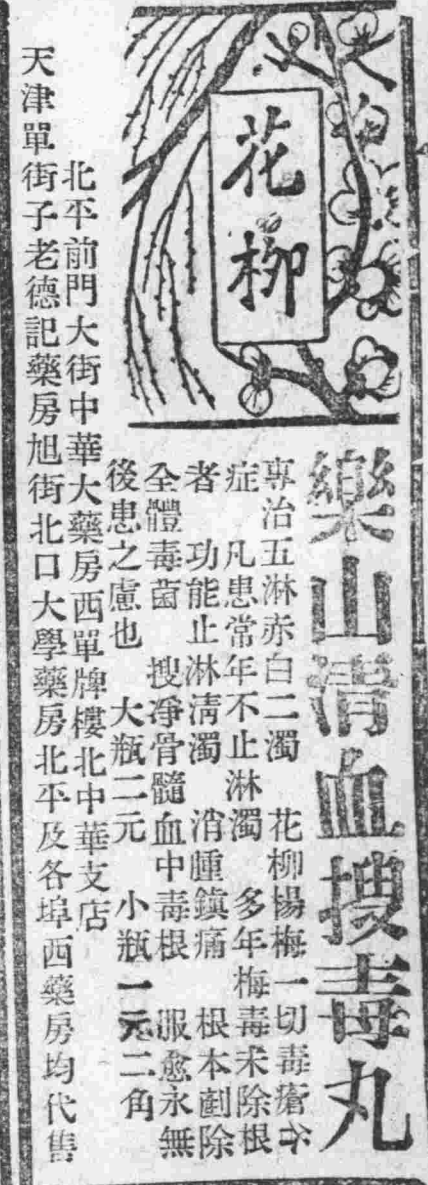 花柳
樂山清血搜毒丸
專治五淋赤白二濁 花柳楊梅一切毒瘡各
症 凡患常年不止淋濁 多年梅毒未除根
者 功能止淋清濁 消腫鎮痛 根本剷除
全體毒菌 搜淨骨髓血中毒根 服愈永無
後患之慮也 大瓶二元 小瓶一元二角
北平前門大街中華大藥房西單牌樓北中華支店
天津單街子老德記藥房旭街北口大學藥房北平及各埠西藥房均代售